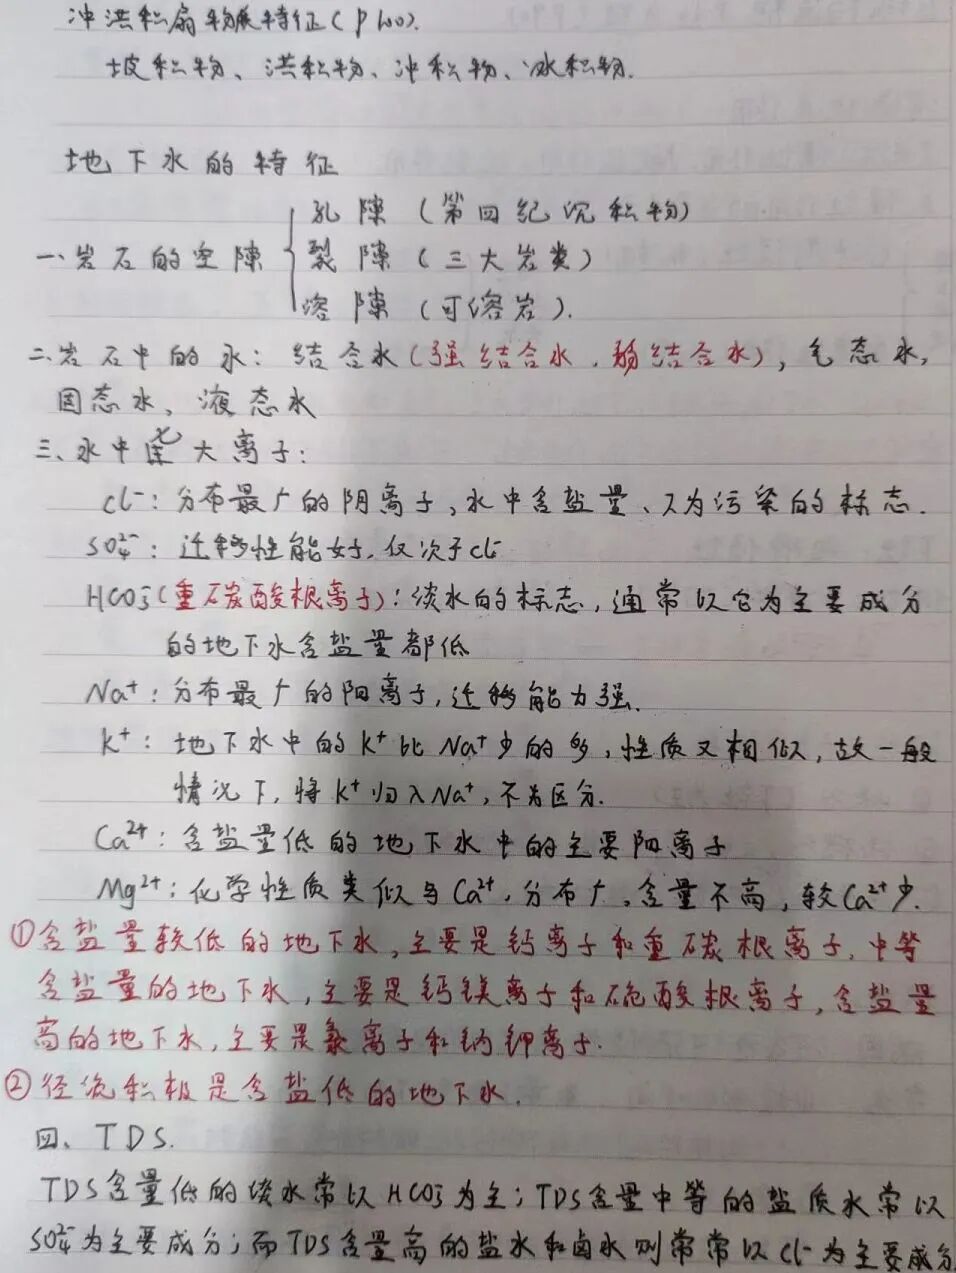 冲洪积扇物质特征(P100).
坡积物、洪积物、冲积物、冰积物.
地下水的特征
一、岩石的空隙
孔隙(第四纪沉积物)
裂隙(三大岩类)
溶隙(可溶岩).
二、岩石中的水:结合水(强结合水,弱结合水),气态水,
固态水、液态水
三、水中七大离子:
Cl⁻:分布最广的阴离子,水中含盐量、又为污染的标志.
SO₄²⁻:迁移性能好,仅次于Cl⁻
HCO₃⁻(重碳酸根离子):淡水的标志,通常以它为主要成分
的地下水含盐量都低
Na⁺:分布最广的阳离子,迁移能力强.
K⁺:地下水中的K⁺比Na⁺少的多,性质又相似,故一般
情况下,将K⁺归入Na⁺,不为区分.
Ca²⁺:含盐量低的地下水中的主要阳离子
Mg²⁺:化学性质类似与Ca²⁺,分布广,含量不高,较Ca²⁺少.
①含盐量较低的地下水,主要是钙离子和重碳根离子,中等
含盐量的地下水,主要是钙镁离子和硫酸根离子,含盐量
高的地下水,主要是氯离子和钠钾离子.
②径流积极是含盐低的地下水.
四、TDS.
TDS含量低的淡水常以HCO₃⁻为主;TDS含量中等的盐质水常以
SO₄²⁻为主要成分;而TDS含量高的盐水和卤水则常常以Cl⁻为主要成分